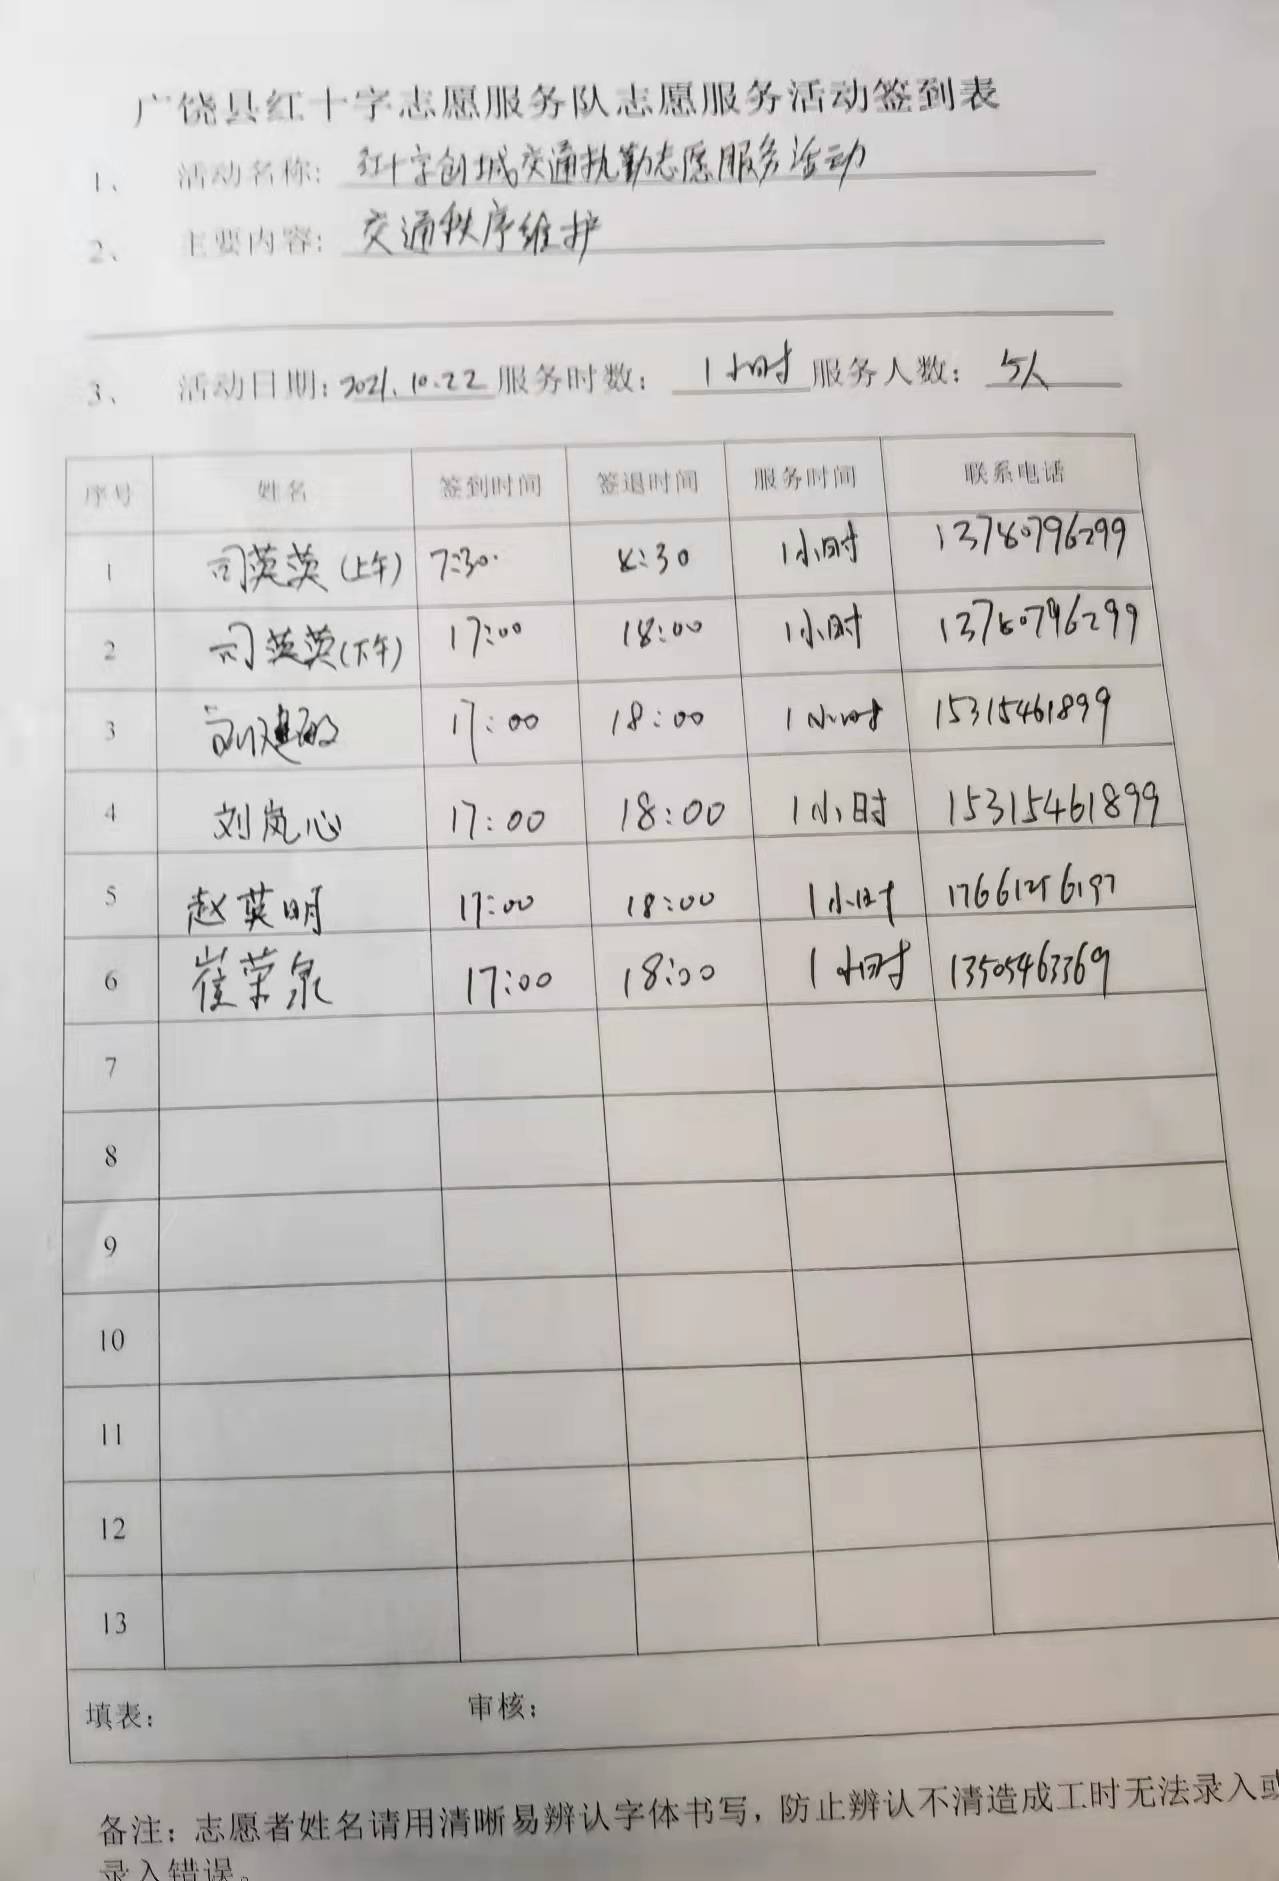 广饶县红十字志愿服务队志愿服务活动签到表
1、 活动名称: 红十字创城交通执勤志愿服务活动
2、 主要内容: 交通秩序维护
3、 活动日期: 2021.10.22 服务时数: 1小时 服务人数: 5人
序号 姓名 签到时间 签退时间 服务时间 联系电话
1 司英英(上午) 7:30 8:30 1小时 13780796299
2 司英英(下午) 17:00 18:00 1小时 13780796299
3 刘建敏 17:00 18:00 1小时 15315461899
4 刘岚心 17:00 18:00 1小时 15315461899
5 赵英明 17:00 18:00 1小时
6 崔荣泉 17:00 18:00 1小时 13505463369
7
8
9
10
11
12
13
填表: 审核:
备注: 志愿者姓名请用清晰易辨认字体书写, 防止辨认不清造成工时无法录入或
录入错误。